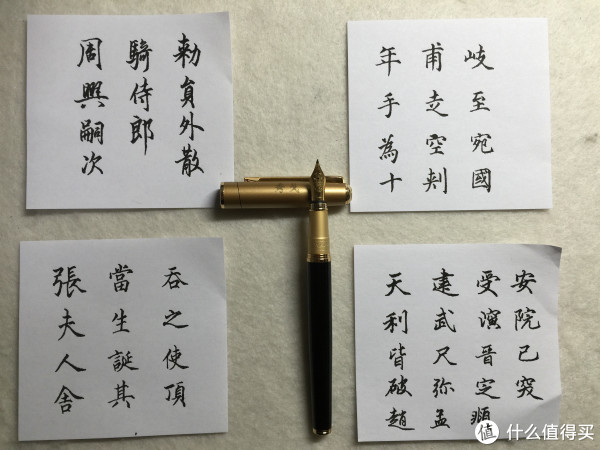 勅員外散
騎侍郎
周興嗣次
岐至宛國
甫赱空刾
年手為十
吞之使頂
當生誕其
張夫人舍
安院已
受演晉定順
建武尺弥孟
天利皆破趙
值 什么值得买